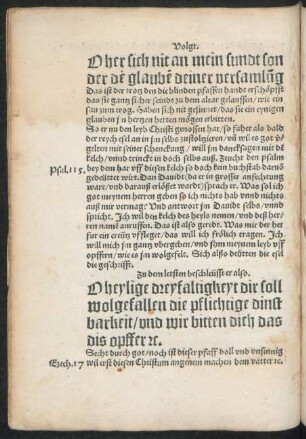 Volgt.
O her sich nit an mein sundt son
der dẽ glaubẽ deiner versamlũg
Das ist der trotz den die blinden pfaffen hande erschöpfft
das sie gantz sicher seindt zu dem altar gelauffen / wie ein
sau zum trog. Haben sich nit gefürcht / das sie ein eynigen
glauben in hertzen hetten mögen erbitten.
So er nu den leyb Christi genossen hat / so fahet als bald
der reych esel an in im selbs zustoltzieren /
gelten mit seiner schenckung / will jm dancksagen mit dẽ
kelch / wund trinckt in doch selbs auß. Feucht den psalm
Psal. 115. bey dem har vff diesen kelch so doch kein buchstab dauon
Dan Dauid / da er in grosser anfechtung
wart / vnd darauß erlößet wardt) sprach er. Was sol ich
got meynem herren geben so ich nichts hab vnnd nichts
auß mir vermag: Vnd entwort jm Dauidt selbs / vnnd
spricht. Ich will den kelch des heyls nemen / vnd deß her/
ren namẽ anruffen. Das ist also geredt. Was mir der her
für ein creütz vffleget / das will ich frölich tragen. Ich
will mich jm gantz vbergeben / vnd jhm meynen leyb vff
opffern / wie es jm wolgefelt. Sich also deütten die esel
die geschrifft.
Zu dem letsten beschleüsst er also.
O heylige dreyfaltigkeyt dir soll
wolgefallen die pflichtige dinst
barkeit / vnd wir bitten dich das
dis opffer ꝛc.
Secht durch got / noch ist dieser pfaff voll vnd vnsinnig
Ezech. 17 wil erst diesen Christum angenem machen dem vatter ꝛc.